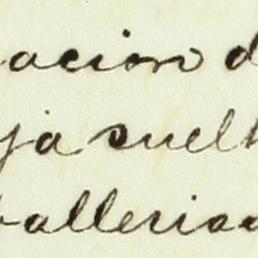 acion d
ja suel
balleria